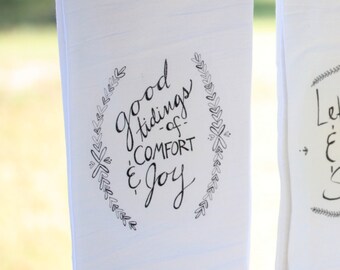 good
tidings
-of-
COMFORT
& Joy
&